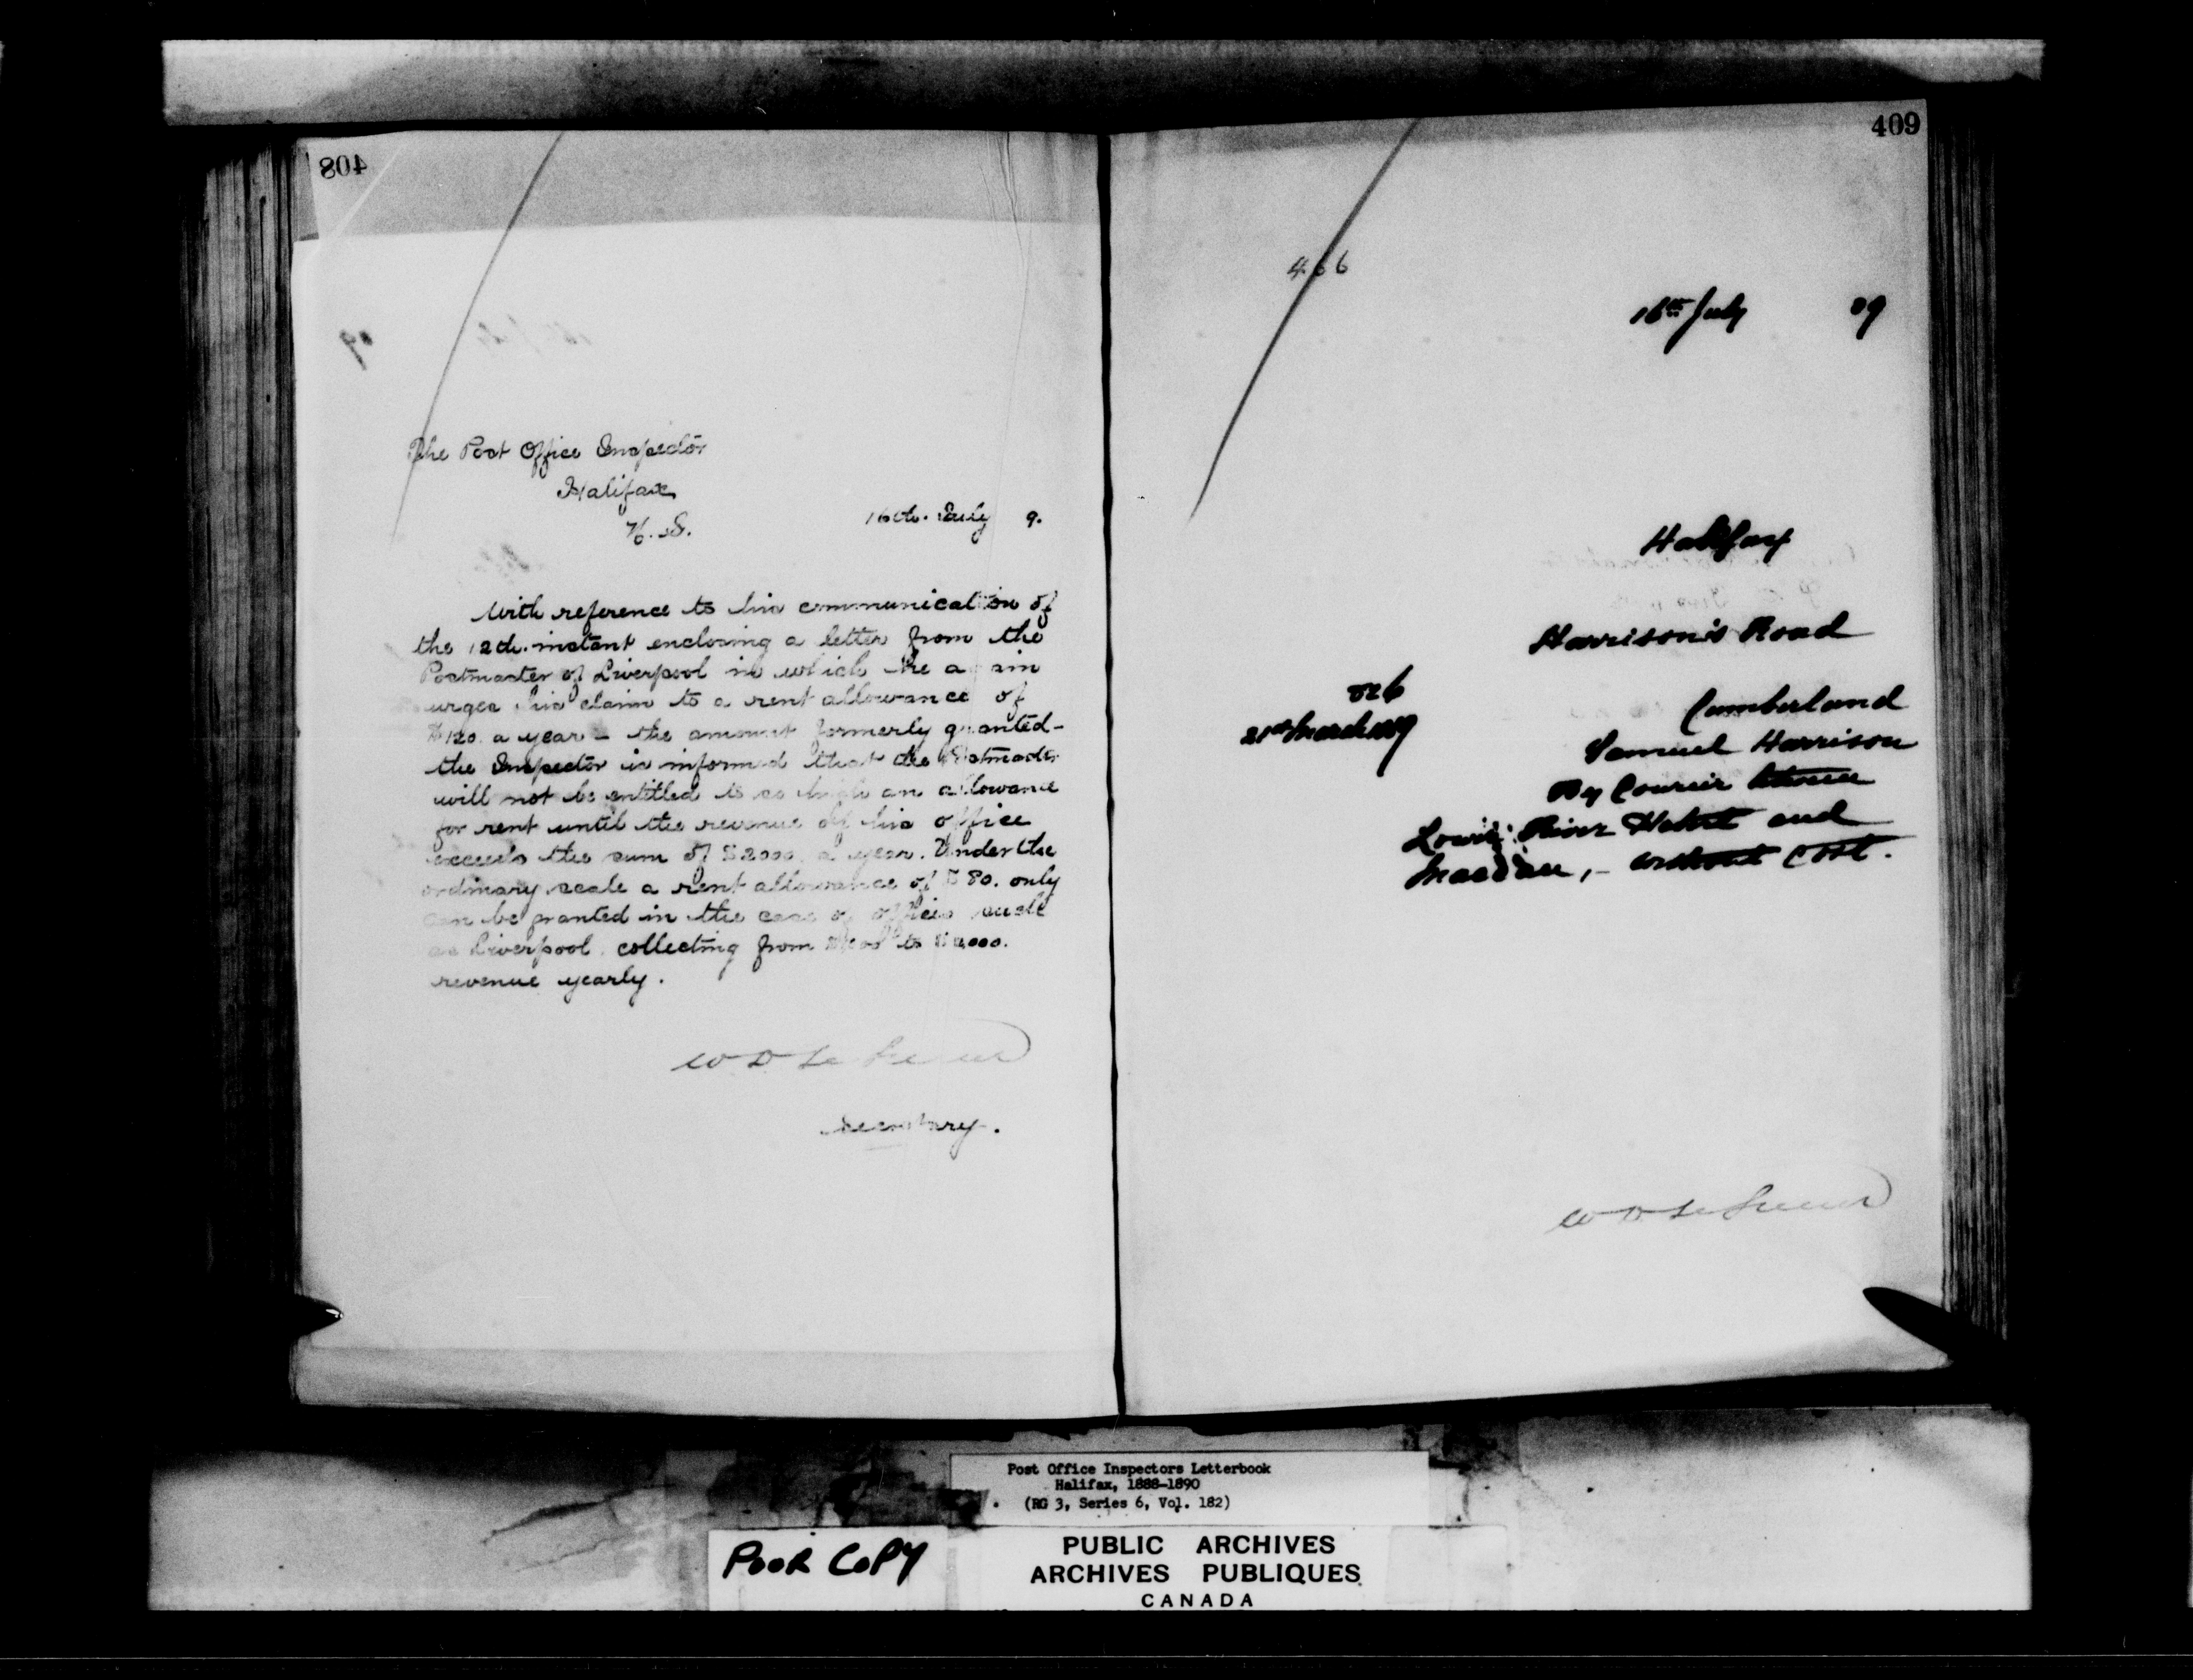 408
The Post Office Inspector
Halifax
N.S.
16th. July 9.
With reference to his communication of
the 12th. instant enclosing a letter from the
Postmaster of Liverpool in which he again
urges his claim to a rent allowance of
$120. a year – the amount formerly granted –
the Inspector is informed that the Postmaster
will not be entitled to so high an allowance
for rent until the revenue of his office
exceeds the sum of $2000. a year. Under the
ordinary scale a rent allowance of $80. only
can be granted in the case of offices such
as Liverpool collecting from to $2,000.
revenue yearly.
W D Le Sueur
Secretary.
409
466
16th July 89
Halifax
Harrison's Road
526
21st March 1889
Cumberland
Samuel Harrison
By Courier between
Lower River Hebert and
Maccan, – without cost.
W D Le Sueur
Post Office Inspectors Letterbook
Halifax, 1888-1890
(RG 3, Series 6, Vol. 182)
POOR COPY
PUBLIC ARCHIVES
ARCHIVES PUBLIQUES
CANADA